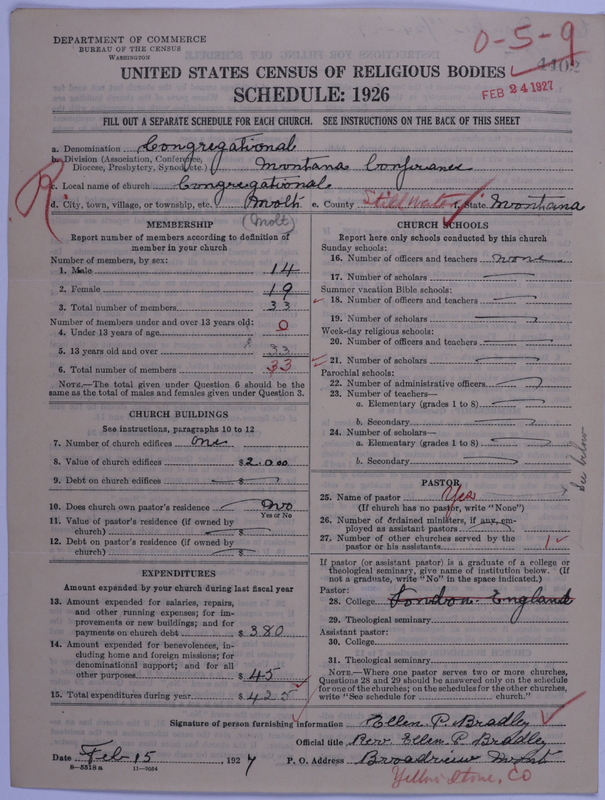 DEPARTMENT OF COMMERCE
BUREAU OF THE CENSUS
WASHINGTON
0-5-9
4402
UNITED STATES CENSUS OF RELIGIOUS BODIES
SCHEDULE: 1926
FEB 24 1927
FILL OUT A SEPARATE SCHEDULE FOR EACH CHURCH. SEE INSTRUCTIONS ON THE BACK OF THIS SHEET
R
a. Denomination Congregational
b. Division (Association, Conference, Diocese, Presbytery, Synod, etc.) Montana Conference
c. Local name of church Congregational
d. City, town, village, or township, etc. Molt e. County Stillwater f. State Montana
(Molt)
MEMBERSHIP
Report number of members according to definition of
member in your church
Number of members, by sex:
1. Male 14
2. Female 19
3. Total number of members 33
Number of members under and over 13 years old:
4. Under 13 years of age 0
5. 13 years old and over 33
6. Total number of members 33
NOTE.—The total given under Question 6 should be
same as the total of males and females given under Question 3.
CHURCH BUILDINGS
See instructions, paragraphs 10 to 12
7. Number of church edifices one
8. Value of church edifices $2000
9. Debt on church edifices $
10. Does church own pastor's residence No
Yes or No
11. Value of pastor's residence (if owned by
church) $
12. Debt on pastor's residence (if owned by
church) $
EXPENDITURES
Amount expended by your church during last fiscal year
13. Amount expended for salaries, repairs,
and other running expenses; for im-
provements or new buildings; and for
payments on church debt $ 380
14. Amount expended for benevolences, in-
cluding home and foreign missions; for
denominational support; and for all
other purposes $ 45
15. Total expenditures during year $ 425
CHURCH SCHOOLS
Report here only schools conducted by this church
Sunday schools:
16. Number of officers and teachers none
17. Number of scholars
Summer vacation Bible schools:
18. Number of officers and teachers
19. Number of scholars
Week-day religious schools:
20. Number of officers and teachers
21. Number of scholars
Parochial schools:
22. Number of administrative officers
23. Number of teachers—
a. Elementary (grades 1 to 8)
b. Secondary
24. Number of scholars—
a. Elementary (grades 1 to 8)
b. Secondary
PASTOR
25. Name of pastor Yes
See below
(If church has no pastor, write "None")
26. Number of ordained ministers, if any, em-
ployed as assistant pastors
27. Number of other churches served by the
pastor or his assistants 1
If pastor (or assistant pastor) is a graduate of a college or
theological seminary, give name of institution below. (If
not a graduate, write "No" in the space indicated.)
Pastor:
28. College London England
29. Theological seminary
Assistant pastor:
30. College
31. Theological seminary
NOTE.—Where one pastor serves two or more churches,
Questions 28 and 29 should be answered only on the schedule
for one of the churches; on the schedules for the other churches,
write "See schedule for ______ church."
Signature of person furnishing information Ellen P. Bradley
Official title Rev. Ellen P. Bradley
Date Feb 15 1927 P. O. Address Broadview Mont
8—5518 a 11—9054
Yellowstone, CO